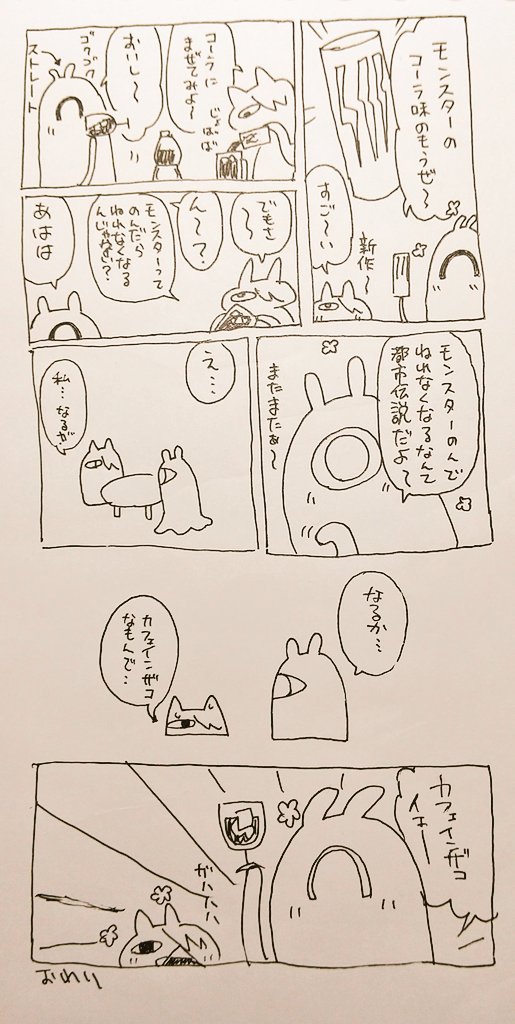 モンスターの
コーラ味のもうぜ〜
新作〜
すご〜い
コーラに
まぜてみよ〜
じょばば
おいし〜
ゴクゴク
ストレート
でもさ
〜
ん〜?
モンスターって
のんだら
ねれなくなる
んじゃない?
あはは
モンスターのんで
ねれなくなるなんて
都市伝説だよ〜
またまたぁ〜
え…
私…なるが
なるか…
カフェインザコ
なもんで…
カフェインザコ
ガハハハ
おわり